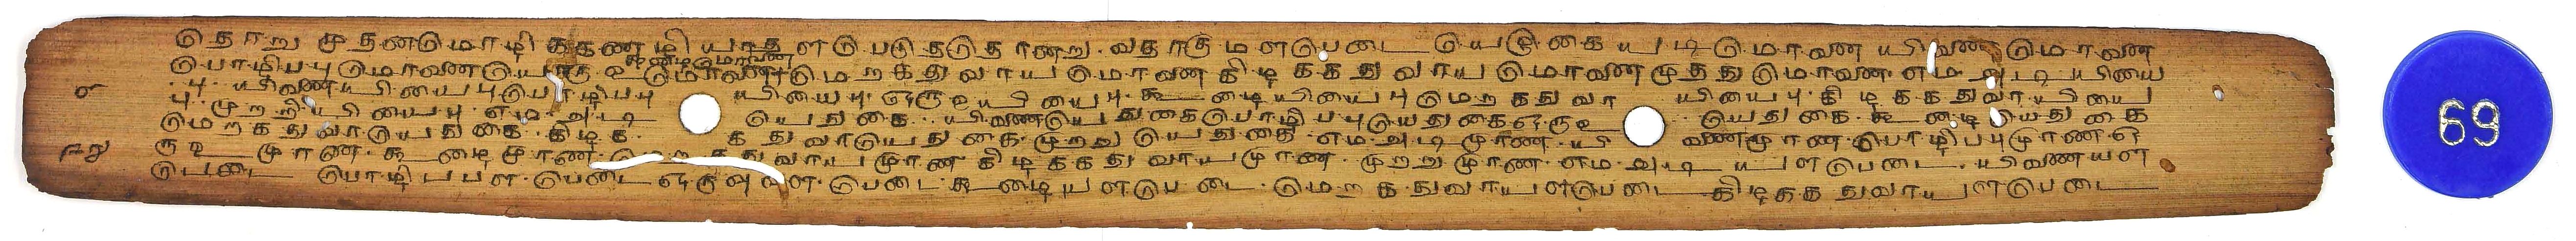 தொறு முதனமொழி யாத வதாகு மளபெடை யெதுகை யடிமொனை யிணை மொனை
கூழைமொனை
பொழிபபு மொனை மொனை மெறகதுவாய மொனை கிழககதுவாய மொனை முறறு மொனை எம அடி யியை
பு. யிணை யியைபு பொழிபபு யியைபு. ஒருஉ யியைபு. கூழை யியைபு மெறகதுவா யியைபு. கிழககதுவா யியை
பு. முறறியியைபு. எம அடி யெதுகை. யிணையெதுகை பொழிபபுயெதுகை ஒருஉ யெதுகை. கூழையெதுகை
மெறகதுவாயெதுகை. கிழக கதுவாயெதுகை. முறறு யெதுகை. எம அடி முரண. யிணைமுரண. பொழிபபுமுரண. ஒ
ருஉ முரண. கூழைமுரண. மெறகதுவாய முரண கிழககதுவாயமுரண. முறறுமுரண. எம அடி யளபெடை. யிணையள
பெடை பொழிபபள. பெடை ஒருஉவள. பெடை கூழையளபெடை. மெறகதுவாயளபெடை கிழககதுவாயளபெடை
69